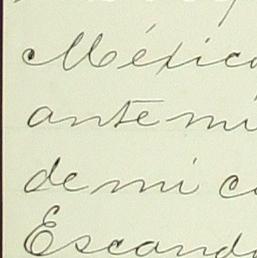 México
ante mi
de mi c
Escand